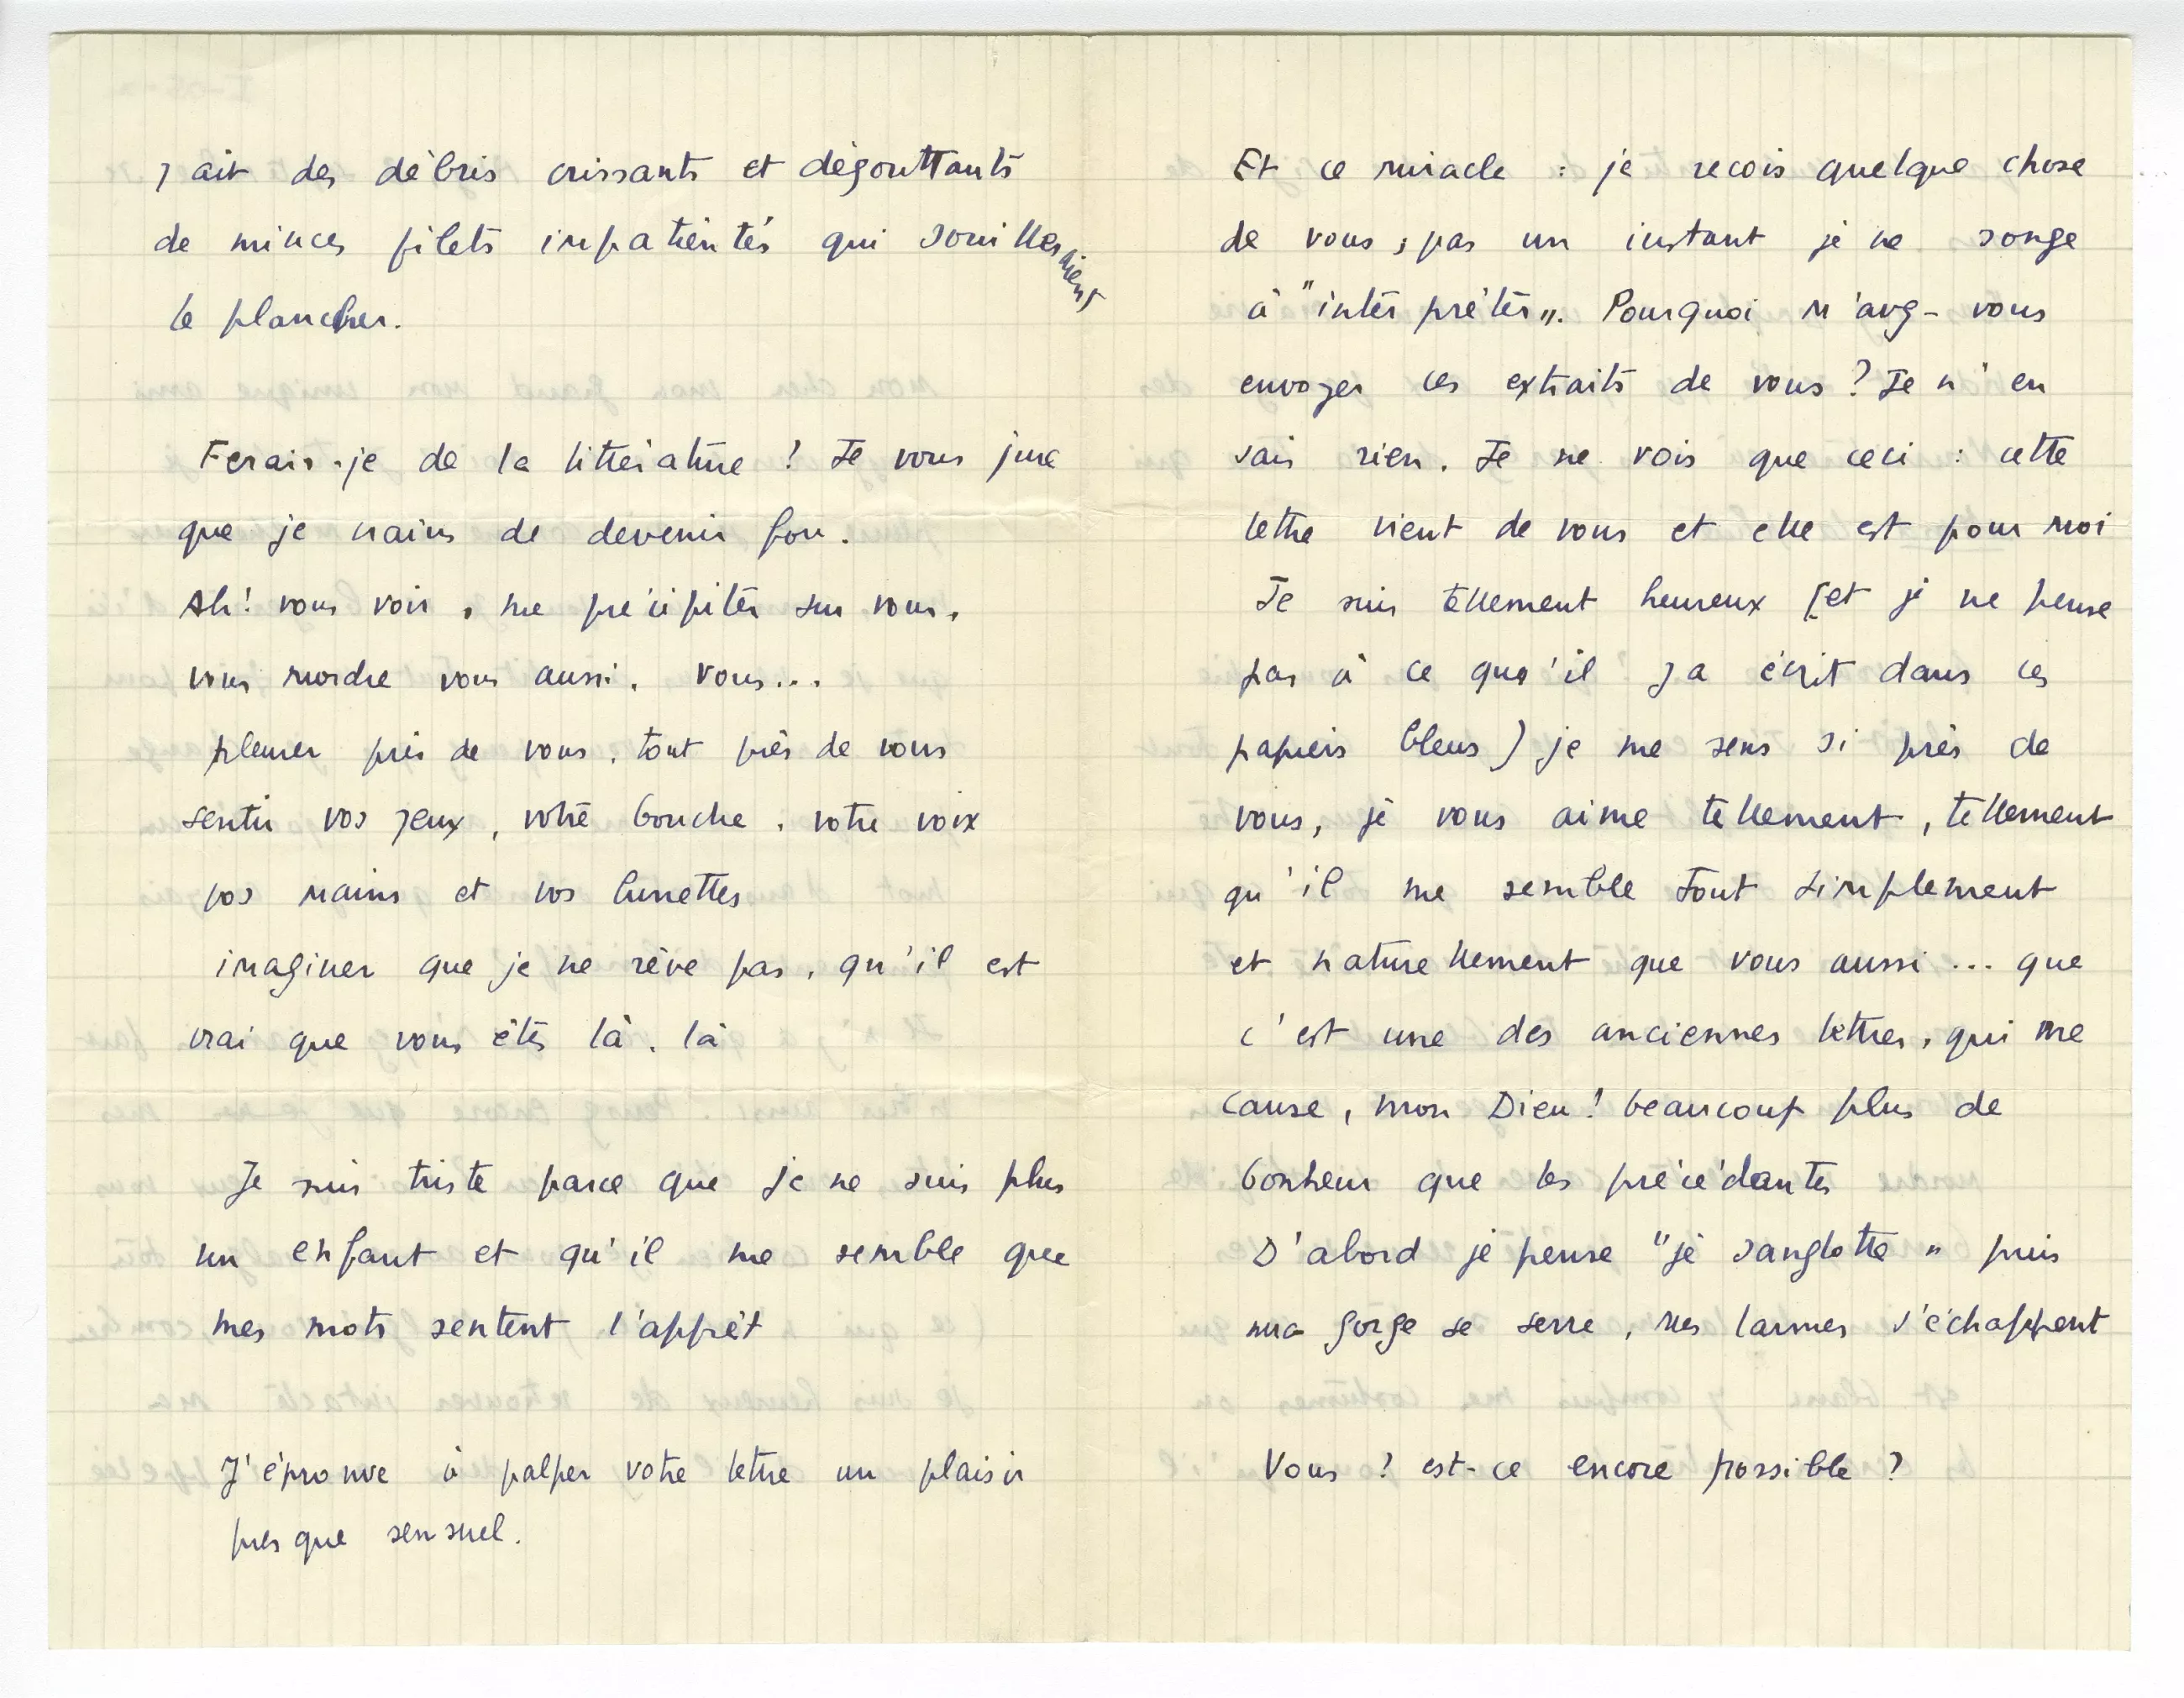 y ait des débris crissants et dégouttants
de minces filets impatientés qui souilleraient
le plancher.
Ferais-je de la littérature ? Je vous jure
que je crains de devenir fou.
Ah! vous voir, me précipiter sur vous,
vous mordre vous aussi. Vous...
pleurer près de vous, tout près de vous
sentir vos yeux, votre bouche, votre voix
vos mains et vos lunettes
imaginer que je ne rêve pas, qu'il est
vrai que vous êtes là, là
Je suis triste parce que je ne suis plus
un enfant et qu'il me semble que
mes mots sentent l'apprêt
J'éprouve à palper votre lettre un plaisir
presque sensuel.
Et ce miracle : je recois quelque chose
de vous, pas un instant je ne songe
à "interprêter". Pourquoi m'avez-vous
envoyer ces extraits de vous ? Je n'en
sais rien. Je ne vois que ceci : cette
lettre vient de vous et elle est pour moi
Je suis tellement heureux (et je ne pense
pas à ce qu'il y a écrit dans ces
papiers bleus) je me sens si près de
vous, je vous aime tellement, tellement
qu'il me semble tout simplement
et naturellement que vous aussi ... que
c'est une des anciennes lettres, qui me
cause, mon Dieu! beaucoup plus de
bonheur que les précédantes
D'abord je pense "je sanglotte" puis
ma gorge se serre, mes larmes s'échappent
Vous ? est-ce encore possible ?